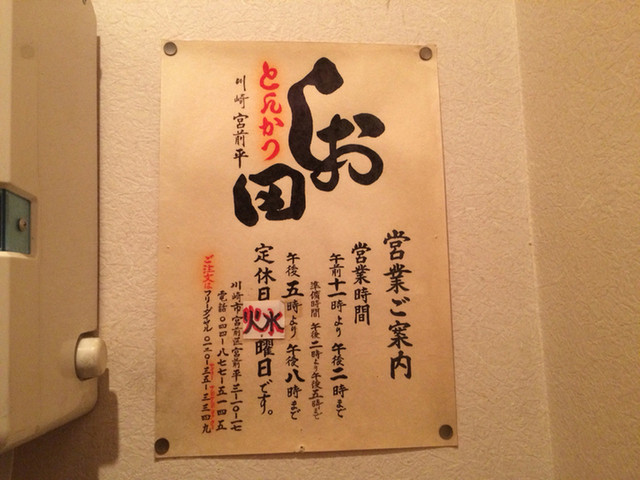 しお田
とんかつ
川崎 宮前平
営業ご案内
営業時間
午前十一時より 午後二時まで
準備時間 午後二時より午後五時まで
午後五時より 午後八時まで
定休日 火水 曜日です。
川崎市宮前区宮前平三-一〇-一七
電話〇四四-八七七-五一四五
ご注文はフリーダイヤル〇一二〇-三五-三三四九